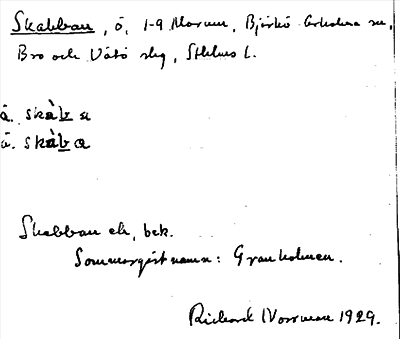 Skabban, ö, 1-9 Marum, Björkö Arholma sn,
Bro och Vätö slg, Sthlms l.
a. skàb a
ä. skàb a
Skabban ek, bek.
Sommargästnamn: Granholmen.
Richard Norrman 1929.